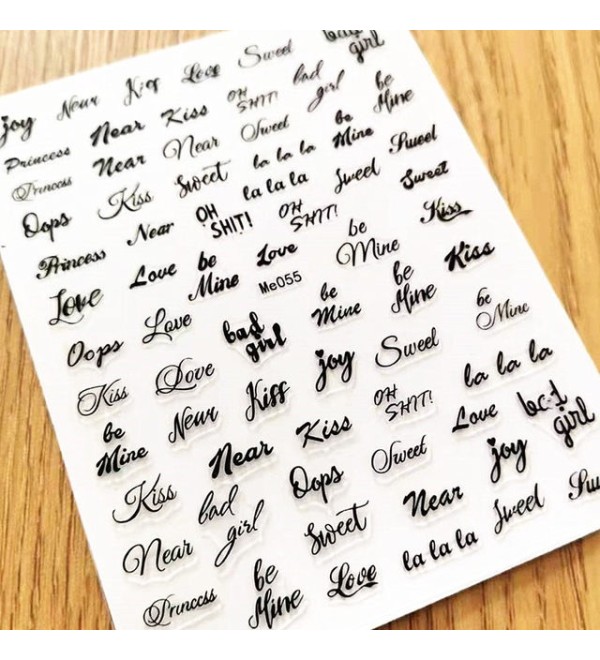 joy Near Kiss Love Sweet bad girl
Princess Near Kiss OH SHIT! bad girl be Mine
Princess Near Near Sweet be Mine
Oops Kiss Sweet la la la Sweet
la la la Sweet Sweet
Princess Near OH SHIT! OH SHIT!
Love Love be Mine Love be Mine Kiss
Me055
Oops Love bad girl be Mine be Mine Kiss
Kiss Love Near Kiss joy Sweet be Mine
be Mine Near Kiss OH SHIT! la la la
Kiss bad girl Oops Sweet Love bad girl
Near Sweet Near joy
Princess be Mine Love la la la Sweet